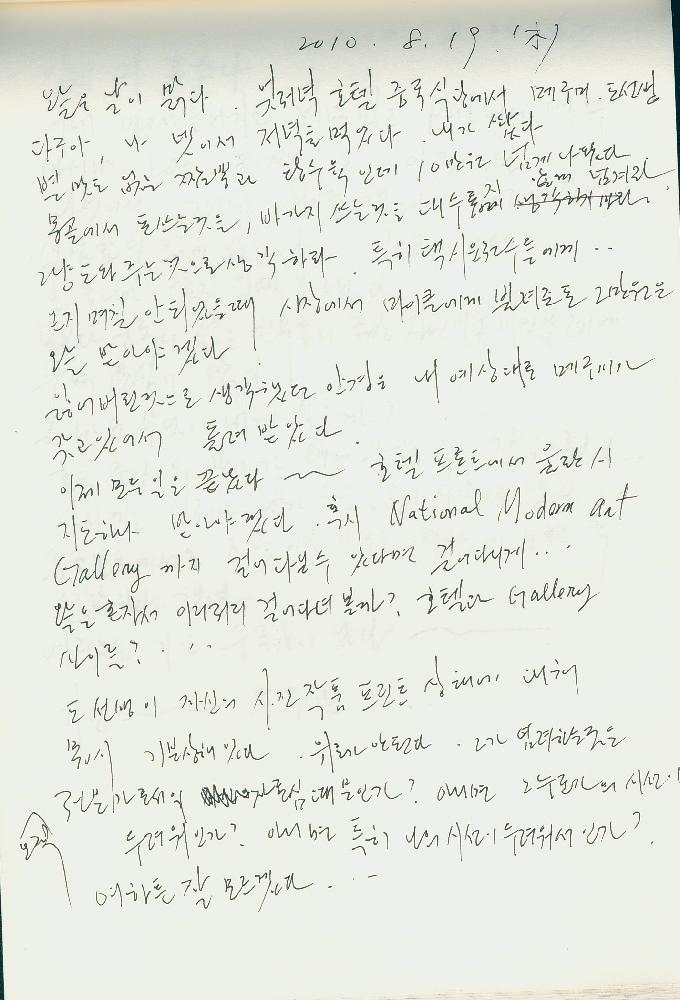 2010. 8. 19. (木)
오늘은 날이 맑다. 엊저녁 호텔 중국식당에서 메루미, 도선생
다구야, 나 넷이서 저녁을 먹었다. 내가 샀다
별 맛도 없는 짬뽕과 탕수육 인데 10만원 넘게 나왔다
몽골에서 돈쓰는것은, 바가지 쓰는것을 대수롭지 않게 넘겨라
그냥 도와주는것으로 생각하라. 특히 택시운전수들에게..
오지 며칠 안되었을때 시장에서 마이클에게 빌려준돈 2만원은
오늘 받아야겠다
잃어버린것으로 생각했던 안경은 내 예상대로 메루미가
갖고있어서 돌려 받았다.
이제 모든 일은 끝났다 ~ 호텔 프론트에서 울란시
지도하나 받아야겠다. 혹시 National Modern art
Gallery 까지 걸어다닐수 있다면 걸어다니게...
오늘은 혼자서 이리저리 걸어다녀 볼까? 호텔과 Gallery
사이를? ...
도선생이 자신의 사진작품 프린트 상태에 대해
몹시 기분상해 있다. 위로가 안된다. 그가 염려하는것은
전문가로서의 자존심때문인가? 아니면 그 누군가의 시선이
두려워인가? 아니면 특히 나의 시선이 두려워서 인가?
여하튼 잘 모르겠다. ...